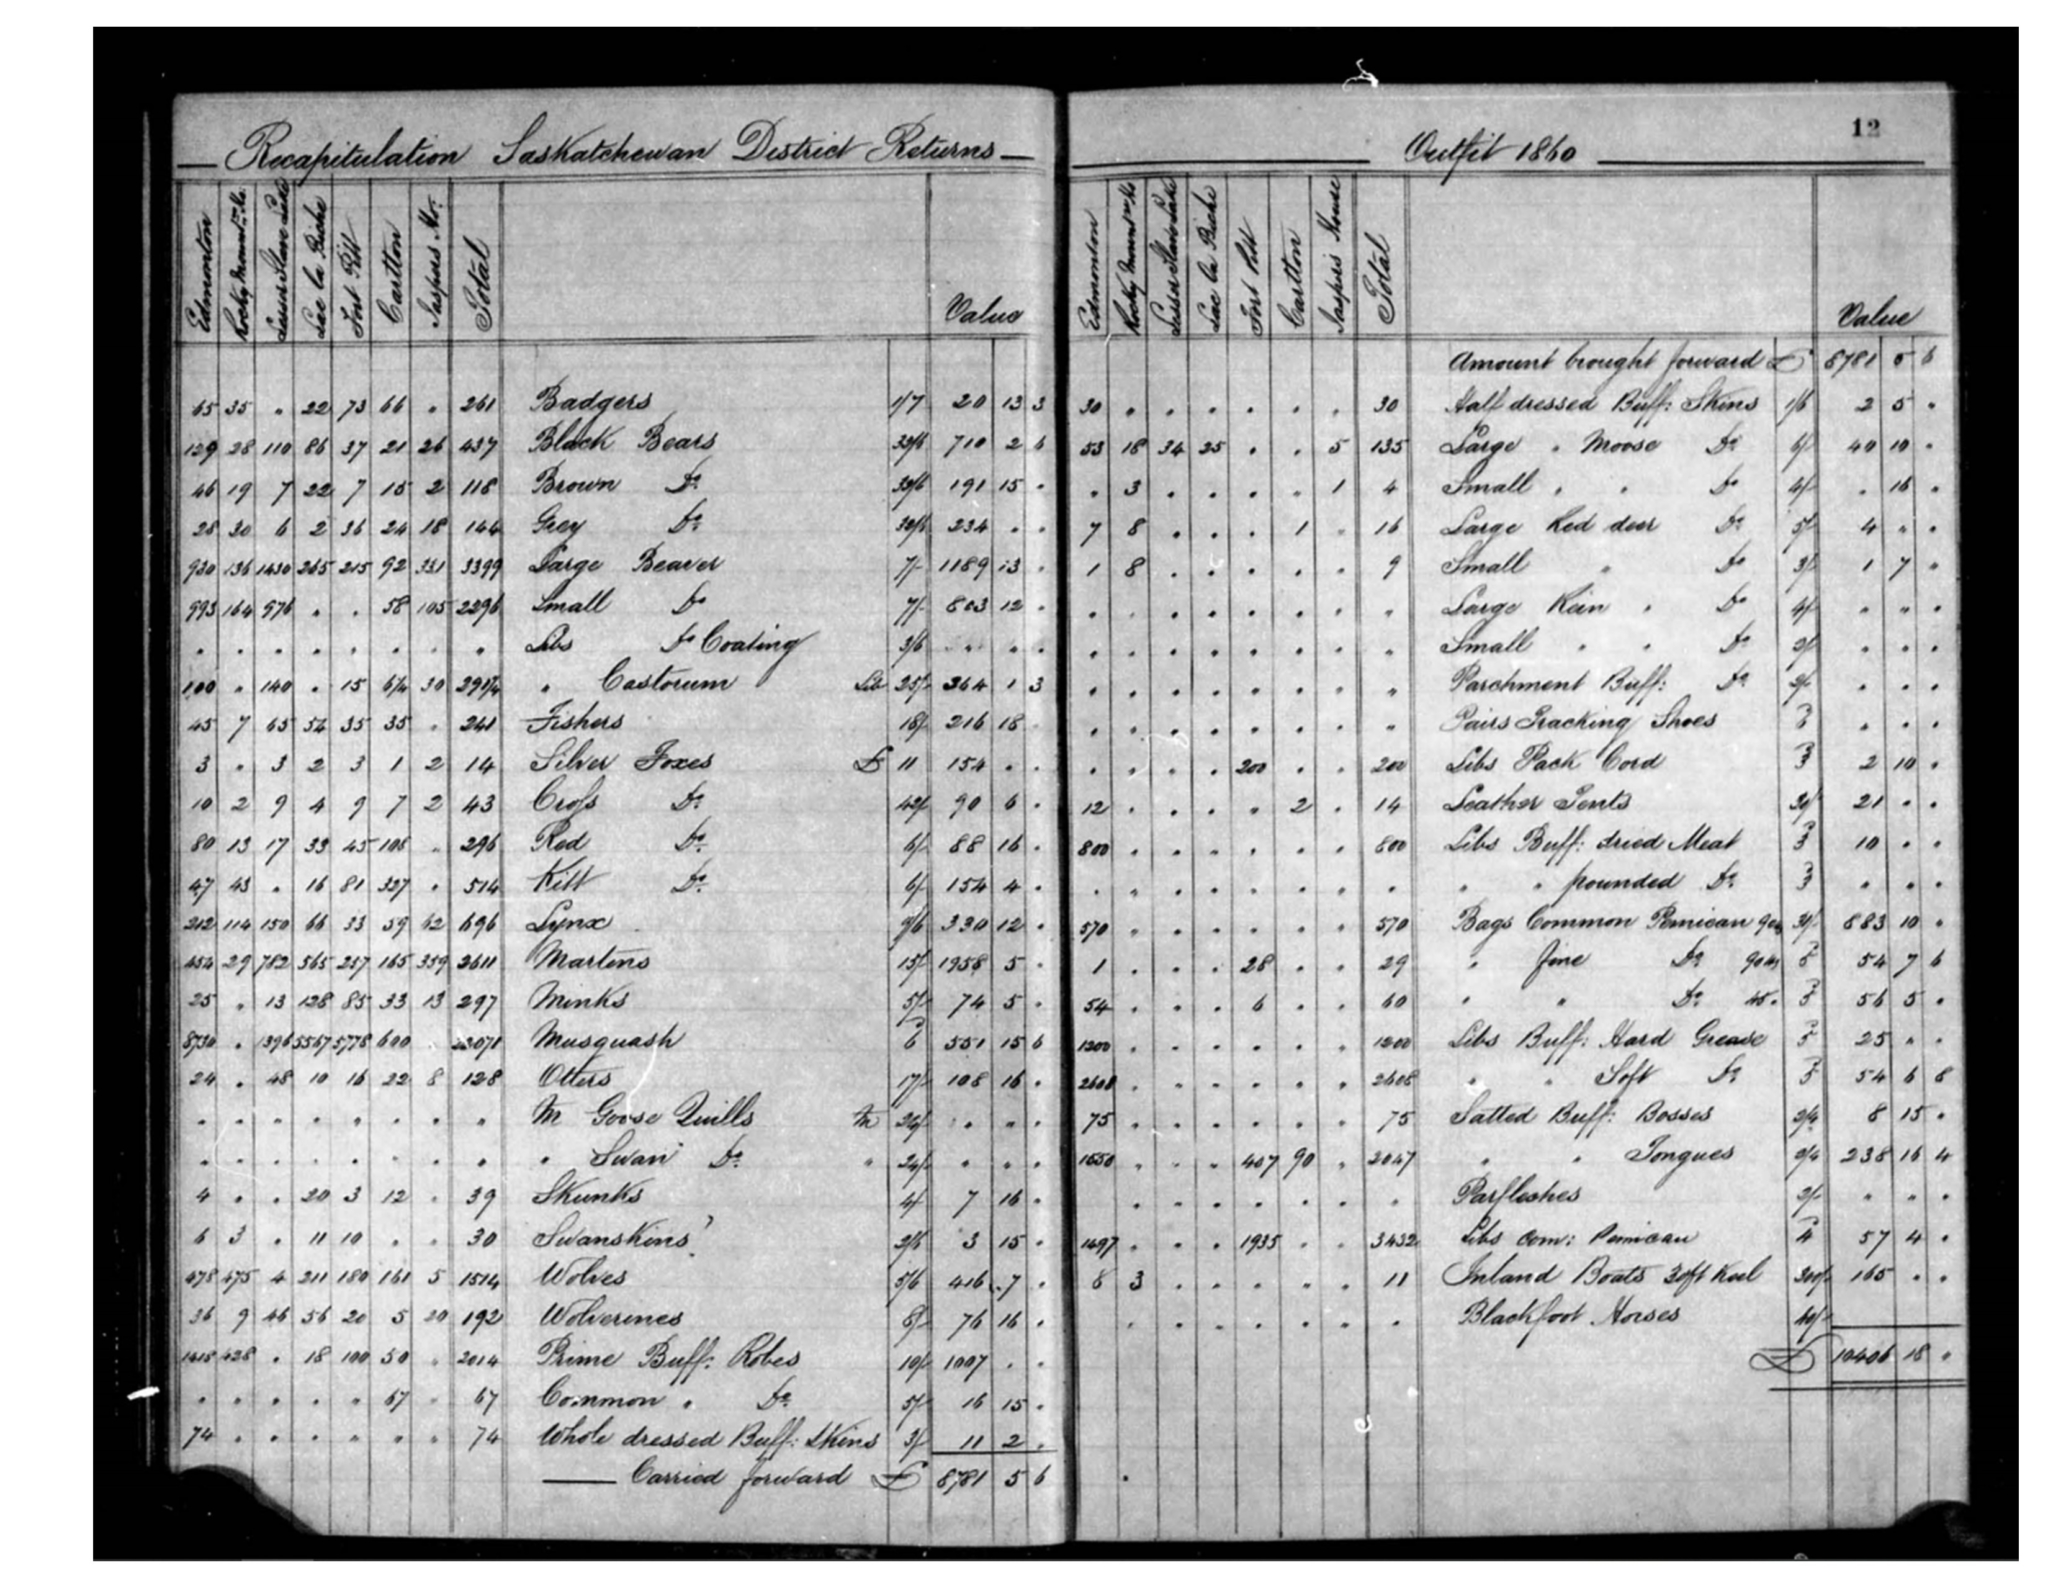 Recapitulation Saskatchewan District Returns
Edmonton Rocky Mount.n Ho. Lesser Slave Lake Lac la Biche Fort Pitt Carlton Jaspers Ho. Total Value
65 35 " 22 73 66 " 261 Badgers 1/7 20 13 3
129 28 110 86 37 21 26 437 Black Bears 32/6 710 2 6
46 19 7 22 7 15 2 118 Brown Do. 32/6 191 15 "
28 30 6 2 36 24 18 144 Grey Do. 32/6 234 " "
930 136 1430 265 215 92 331 3399 Large Beaver 7/- 1189 13 "
993 164 976 " " 58 105 2296 Small Do 7/- 803 12 "
" " " " " " " " Lbs Do Coating 3/6 " " "
100 " 140 " 15 6¼ 30 291¼ " Castorum Lb 25/- 364 1 3
45 7 65 54 35 35 " 241 Fishers 18/- 216 18
3 " 3 2 3 1 2 14 Silver Foxes £ 11 154 " "
10 2 9 4 9 7 2 43 Cross Do. 42/- 90 6 "
80 13 17 33 45 108 " 296 Red Do. 6/- 88 16 "
47 43 " 16 81 327 " 514 Kitt Do. 6/- 154 4 "
212 114 150 66 33 59 62 696 Lynx 9/6 330 12 "
454 29 782 565 257 165 359 2611 Martens 15/- 1958 5 "
25 " 13 128 85 33 13 297 Minks 5/- 74 5 "
8730 " 1396 5567 5778 600 " 22071 Musquash 6 551 15 6
24 " 48 10 16 22 8 128 Otters 17/- 108 16 "
" " " " " " " " M Goose Quills M 24/- " " "
" " " " " " " " " Swan Do. " 24/- " " "
4 " " 20 3 12 " 39 Skunks 4/- 7 16 "
6 3 " 11 10 " " 30 Swanskins 2/6 3 15 "
478 475 4 211 180 161 5 1514 Wolves 5/6 416 7 "
36 9 46 56 20 5 20 192 Wolverines 8/- 76 16 "
1418 428 " 18 100 50 " 2014 Prime Buff: Robes 10/- 1007 " "
" " " " " 67 " 67 Common " Do. 5/- 16 15 "
74 " " " " " " 74 Whole dressed Buff: Skins 3/- 11 2 "
Carried forward £ 8781 5 6
12
Outfit 1860
Edmonton Rocky Mount.n Ho Lesser Slave Lake Lac la Biche Fort Pitt Carlton Jaspers House Total Value
Amount brought forward £ 8781 5 6
30 " " " " " " 30 Half dressed Buff: Skins 1/6 2 5 "
53 18 34 25 " " 5 135 Large " Moose Do 6/- 40 10 "
" 3 " " " " 1 4 Small " " Do 4/- " 16 "
7 8 " " " 1 " 16 Large Red deer Do. 5/- 4 " "
1 8 " " " " " 9 Small " Do 3/- 1 7 "
" " " " " " " " Large Rein " Do 4/- " " "
" " " " " " " " Small " " Do 2/- " " "
" " " " " " " " Parchment Buff: Do. 2/- " " "
" " " " " " " " Pairs Tracking Shoes 6 " " "
" " " " 200 " " 200 Lbs Pack Cord 3 2 10 "
12 " " " " 2 " 14 Leather Tents 30/- 21 " "
800 " " " " " " 800 Lbs Buff: dried Meat 3 10 " "
" " " " " " " " " " pounded Do. 3 " " "
570 " " " " " " 570 Bags Common Pemican 90 lbs 31/- 883 10 "
1 " " " 28 " " 29 " Fine Do. 90 lbs 5 54 7 6
54 " " " 6 " " 60 " " Do. 45 " 5 56 5 "
1200 " " " " " " 1200 Lbs Buff: Hard Grease 5 25 " "
2608 " " " " " " 2608 " " Soft Do. 5 54 6 8
75 " " " " " " 75 Salted Buff: Bosses 2/4 8 15 "
1550 " " " 407 90 " 2047 " " Tongues 2/4 238 16 4
" " " " " " " " Parfleches 2/- " " "
1497 " " " 1935 " " 3432 Lbs Com: Pemican 4 57 4 "
8 3 " " " " " 11 Inland Boats 30ft Keel 300/- 165 " "
" " " " " " " " Blackfoot Horses 40/-
£ 10406 18 "